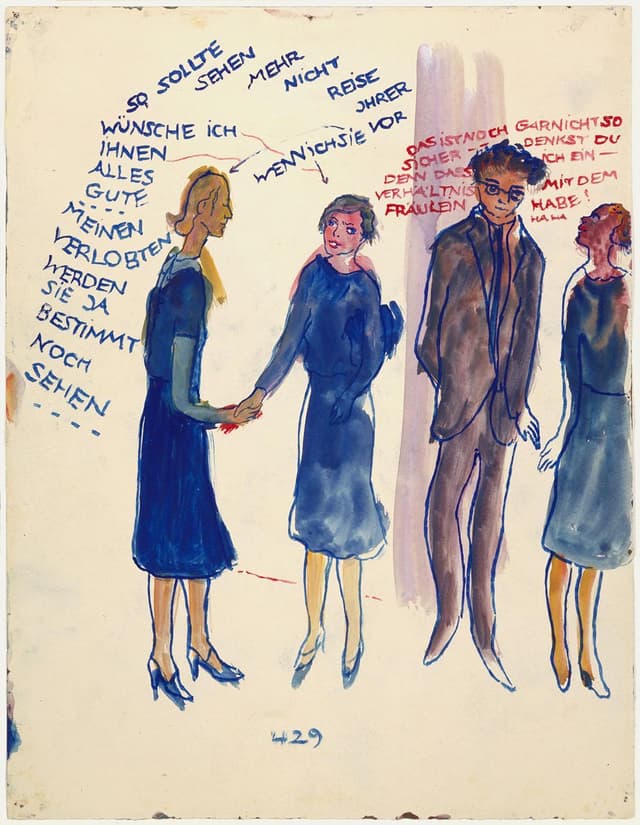 WENN ICH SIE VOR
IHRER
REISE
NICHT
MEHR
SEHEN
SOLLTE
SO
WÜNSCHE ICH
IHNEN
ALLES
GUTE
- - - -
MEINEN
VERLOBTEN
WERDEN
SIE JA
BESTIMMT
NOCH
SEHEN
- - - -
DAS IST NOCH GARNICHT SO
SICHER - - - DENKST DU
DENN DASS ICH EIN —
VERHÄLTNIS MIT DEM
FRÄULEIN HABE!
HA HA
429